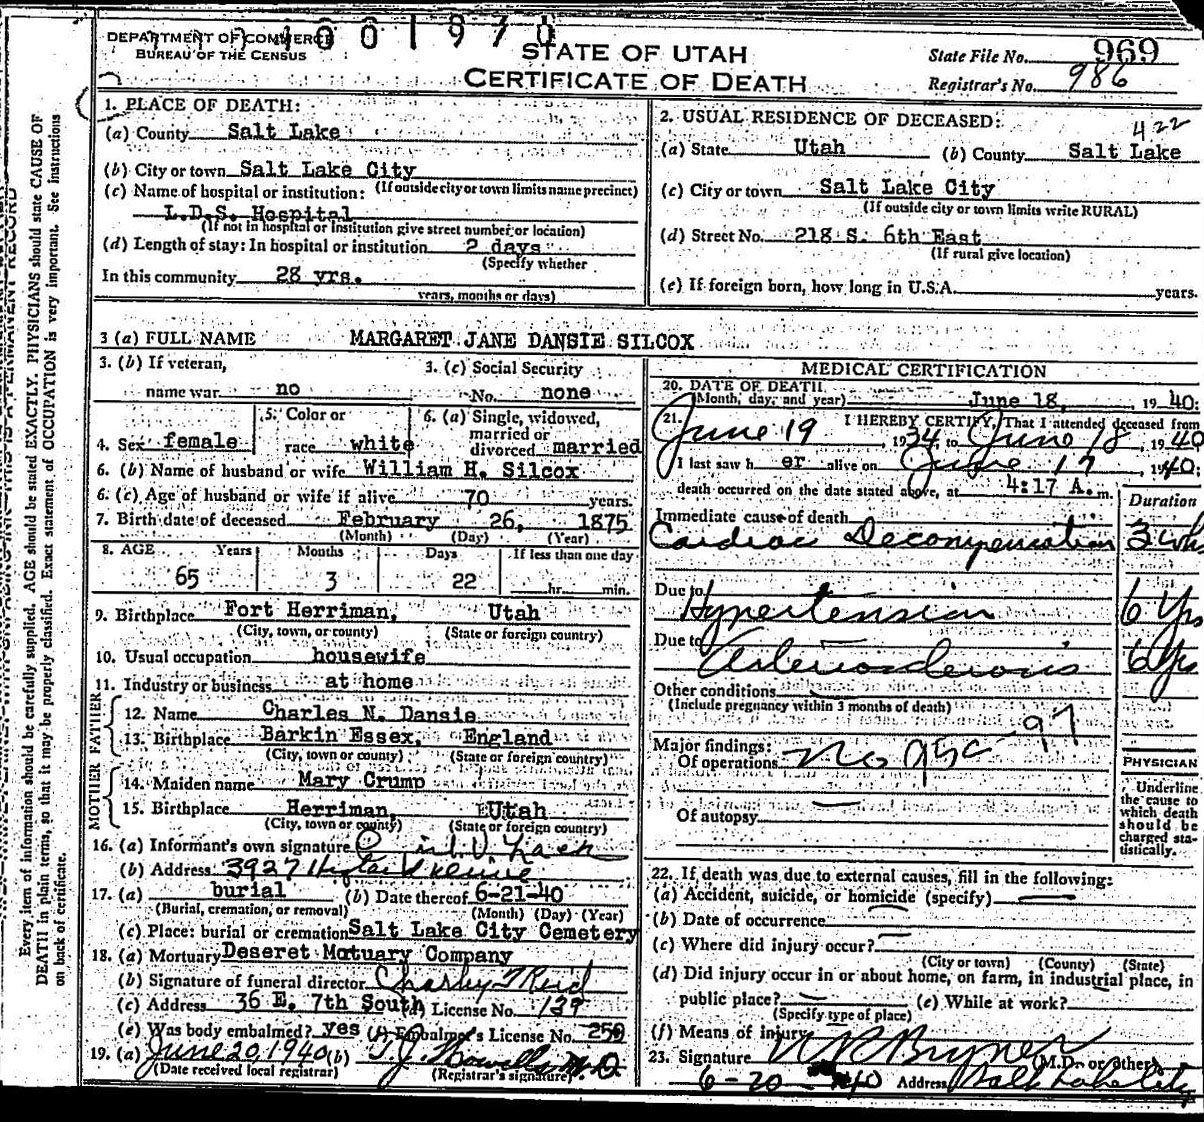 DEPARTMENT OF COMMERCE
BUREAU OF THE CENSUS
STATE OF UTAH
CERTIFICATE OF DEATH
State File No. 969
Registrar's No. 986
1. PLACE OF DEATH:
(a) County Salt Lake
(b) City or town Salt Lake City
(If outside city or town limits name precinct)
(c) Name of hospital or institution:
L.D.S. Hospital
(If not in hospital or institution give street number or location)
(d) Length of stay: In hospital or institution 2 days
(Specify whether
In this community 28 yrs.
years, months or days)
2. USUAL RESIDENCE OF DECEASED:
422
(a) State Utah (b) County Salt Lake
(c) City or town Salt Lake City
(If outside city or town limits write RURAL)
(d) Street No. 218 S. 6th East
(If rural give location)
(e) If foreign born, how long in U.S.A. years.
3 (a) FULL NAME MARGARET JANE DANSIE SILCOX
3. (b) If veteran,
name war no
3. (c) Social Security
No. none
4. Sex female
5. Color or
race white
6. (a) Single, widowed,
married or
divorced married
6. (b) Name of husband or wife William H. Silcox
6. (c) Age of husband or wife if alive 70 years.
7. Birth date of deceased February 26, 1875
(Month) (Day) (Year)
8. AGE Years Months Days If less than one day
65 3 22 hr. min.
9. Birthplace Fort Herriman, Utah
(City, town, or county) (State or foreign country)
10. Usual occupation housewife
11. Industry or business at home
FATHER
12. Name Charles N. Dansie
13. Birthplace Barkin Essex, England
(City, town or county) (State or foreign country)
MOTHER
14. Maiden name Mary Crump
15. Birthplace Herriman, Utah
(City, town or county) (State or foreign country)
16. (a) Informant's own signature
(b) Address 3927
17. (a) burial (b) Date thereof 6-21-40
(Burial, cremation, or removal) (Month) (Day) (Year)
(c) Place: burial or cremation Salt Lake City Cemetery
18. (a) Mortuary Deseret Motuary Company
(b) Signature of funeral director
(c) Address 36 E. 7th South License No. 139
(e) Was body embalmed? yes (f) Embalmer's License No. 250
19. (a) June 20, 1940 (b) M.D.
(Date received local registrar) (Registrar's signature)
MEDICAL CERTIFICATION
20. DATE OF DEATH
(Month, day, and year) June 18, 19 40
21. I HEREBY CERTIFY, That I attended deceased from
June 19, 1934 to June 18, 1940
I last saw her alive on June 17, 1940
death occurred on the date stated above, at 4:17 A. m.
Duration
Immediate cause of death
Cardiac Decompensation 3 wks
Due to Hypertension 6 Yrs
Due to Arteriosclerosis 6 Yrs
Other conditions
(Include pregnancy within 3 months of death)
97
Major findings:
Of operations No
Of autopsy
PHYSICIAN
Underline
the cause to
which death
should be
charged sta-
tistically.
22. If death was due to external causes, fill in the following:
(a) Accident, suicide, or homicide (specify)
(b) Date of occurrence
(c) Where did injury occur?
(City or town) (County) (State)
(d) Did injury occur in or about home, on farm, in industrial place, in
public place? (e) While at work?
(Specify type of place)
(f) Means of injury
23. Signature Bryner (M.D. or other)
6-20-40 Address Salt Lake City
Every item of information should be carefully supplied. AGE should be stated EXACTLY. PHYSICIANS should state CAUSE OF
DEATH in plain terms, so that it may be properly classified. Exact statement of OCCUPATION is very important. See instructions
on back of certificate.